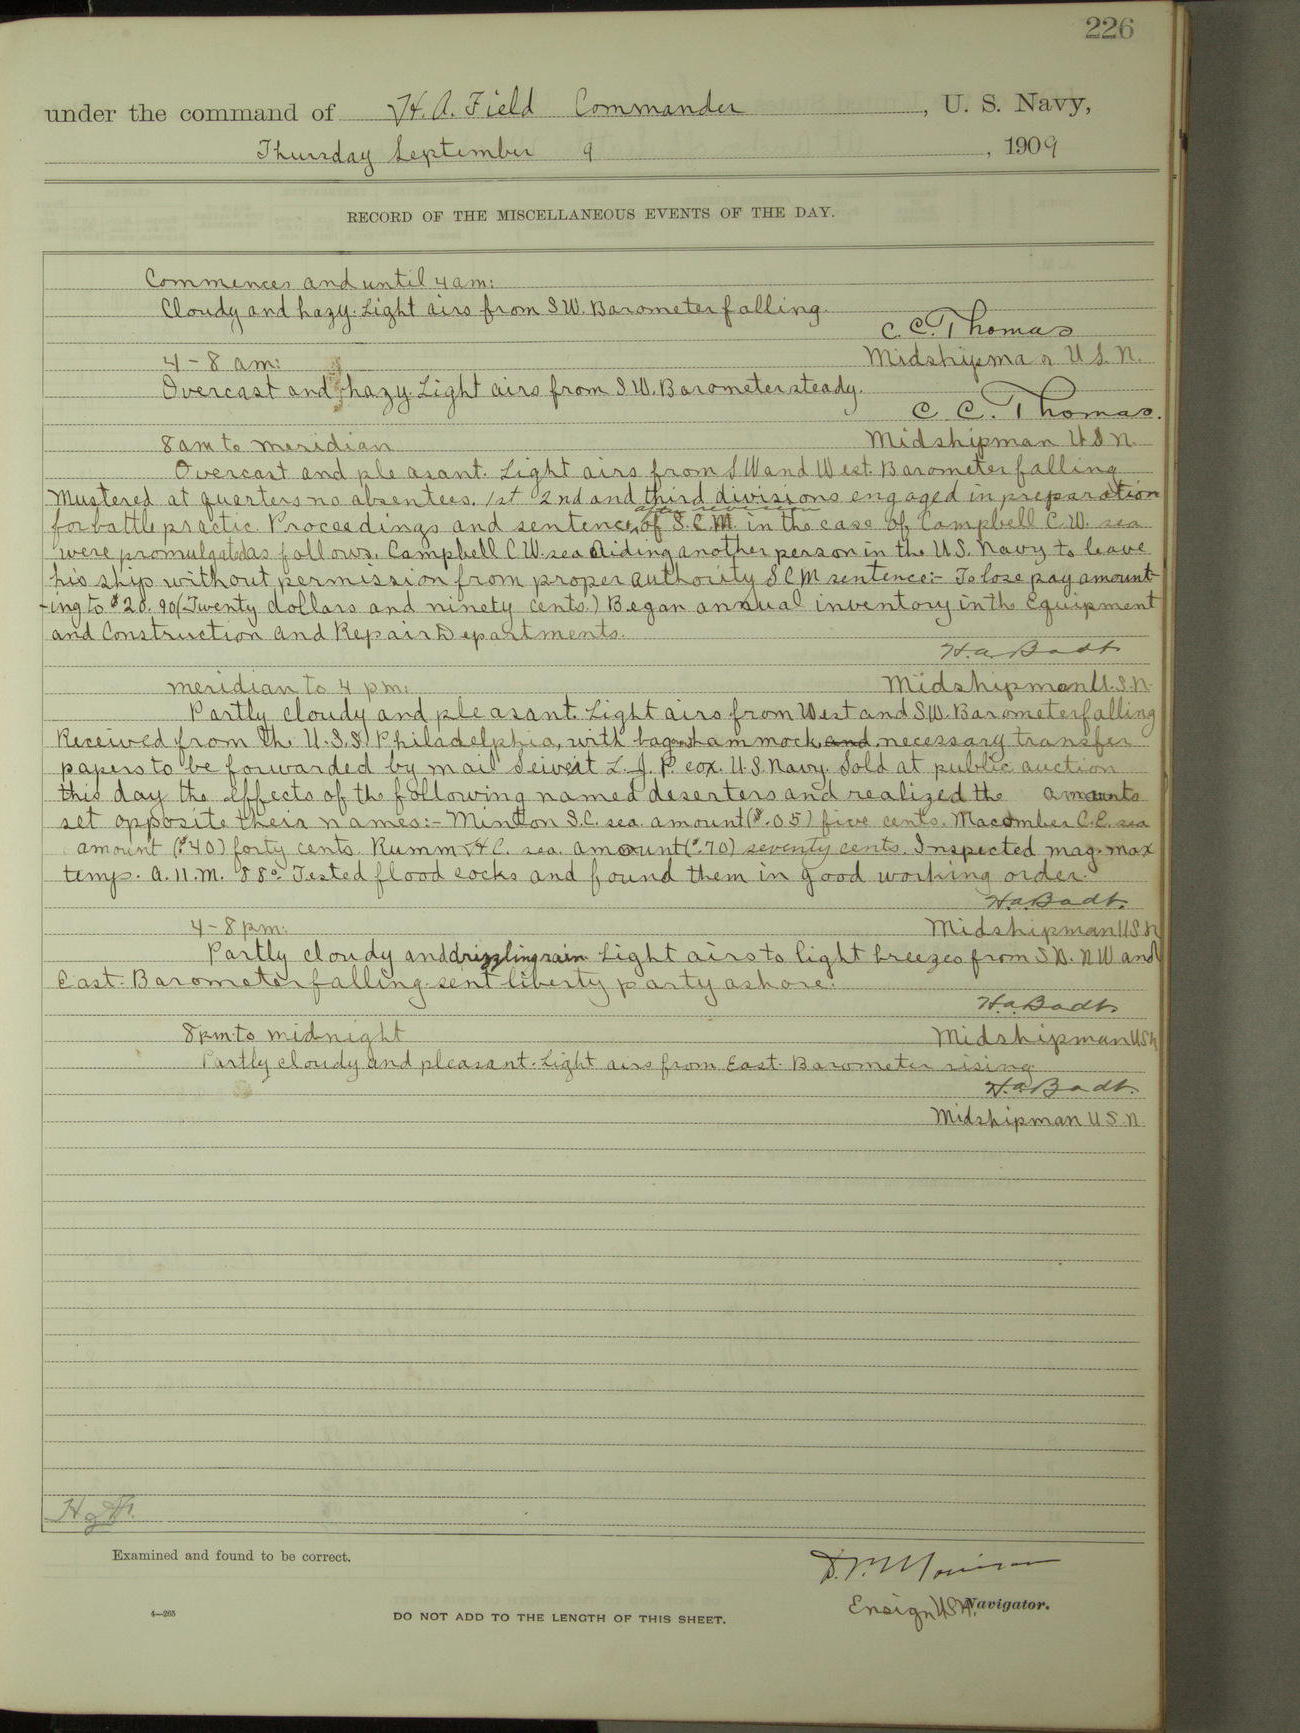 226
under the command of H. A. Field Commander, U. S. Navy,
Thursday September 9, 1909
RECORD OF THE MISCELLANEOUS EVENTS OF THE DAY.
Commences and until 4 am:
Cloudy and hazy. Light airs from S.W. Barometer falling.
C. C. Thomas
4 - 8 am: Midshipman U.S.N.
Overcast and hazy. Light airs from S.W. Barometer steady.
C. C. Thomas.
8 am to meridian Midshipman U.S.N.
Overcast and pleasant. Light airs from SW and West. Barometer falling
Mustered at quarters no absentees. 1st 2nd and third divisions engaged in preparation
after revision
for battle practic. Proceedings and sentence, of S.C.M. in the case of Campbell C.W. sea
were promulgated as follows. Campbell C.W. sea Aiding another person in the U.S. Navy to leave
his ship without permission from proper authority S C M sentence:- To lose pay amount-
-ing to $20.90 (Twenty dollars and ninety cents.) Began annual inventory in the Equipment
and Construction and Repair Departments.
H. a. Badt
meridian to 4 pm: Midshipman U.S.N.
Partly cloudy and pleasant. Light airs from West and S.W. Barometer falling
Received from the U.S.S. Philadelphia, with bag and hammock, and necessary transfer
papers to be forwarded by mail L. J. P. cox. U.S. Navy. Sold at public auction
this day the effects of the following named deserters and realized the amounts
set opposite their names:- Minton S.C. sea. amount ($.05) five cents. Macomber C.E. sea
amount ($.40) forty cents. Rumm H C. sea. amount ($.70) seventy cents. Inspected mag. max
temp. a. 11. M. 88° Tested flood cocks and found them in good working order.
H. a. Badt.
4 - 8 pm: Midshipman U S N
Partly cloudy and drizzling rain Light airs to light breezes from S W. N W and
East. Barometer falling. sent liberty party ashore.
H. a. Badt.
8 pm. to midnight Midshipman U S N
Partly cloudy and pleasant. Light airs from East. Barometer rising
H. a. Badt.
Midshipman U S. N.
Examined and found to be correct.
Ensign U.S.N. Navigator.
4—265
DO NOT ADD TO THE LENGTH OF THIS SHEET.